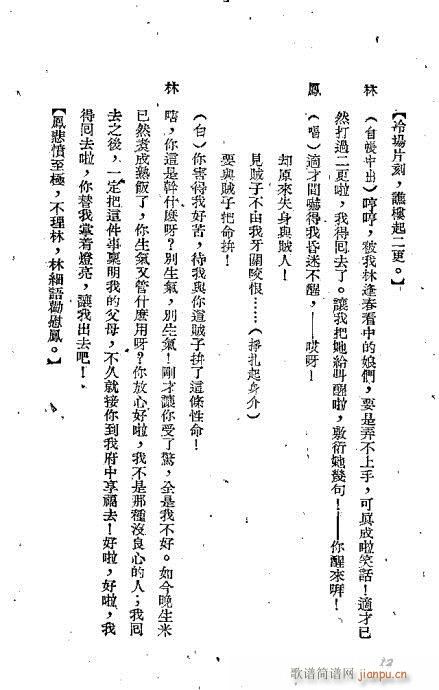 【冷場片刻，譙樓起二更。】
林　（自帳中出）哼哼，被我林逢春看中的娘們，要是弄不上手，可真成啦笑話！適才已
然打過二更啦，我得回去了。讓我把她給叫醒啦，敷衍她幾句！——你醒來啊！
鳳　（唱）適才間嚇得我昏迷不醒，——哎呀！
却原來失身與賊人！
見賊子不由我牙關咬恨……（掙扎起身介）
要與賊子把命拚！
（白）你害得我好苦，待我與你這賊子拚了這條性命！
林　嗐，你這是幹什麼呀？別生氣，別生氣！剛才讓你受了驚，全是我不好。如今晚生米
已然煮成熟飯了，你生氣又管什麼用呀？你放心好啦，我不是那種沒良心的人；我回
去之後，一定把這件事稟明我的父母，不久就接你到我府中享福去！好啦，好啦，我
得回去啦，你替我掌着燈亮，讓我出去吧！
【鳳悲憤至極，不理林，林細語勸慰鳳。】
12
歌谱简谱网
jianpu.cn